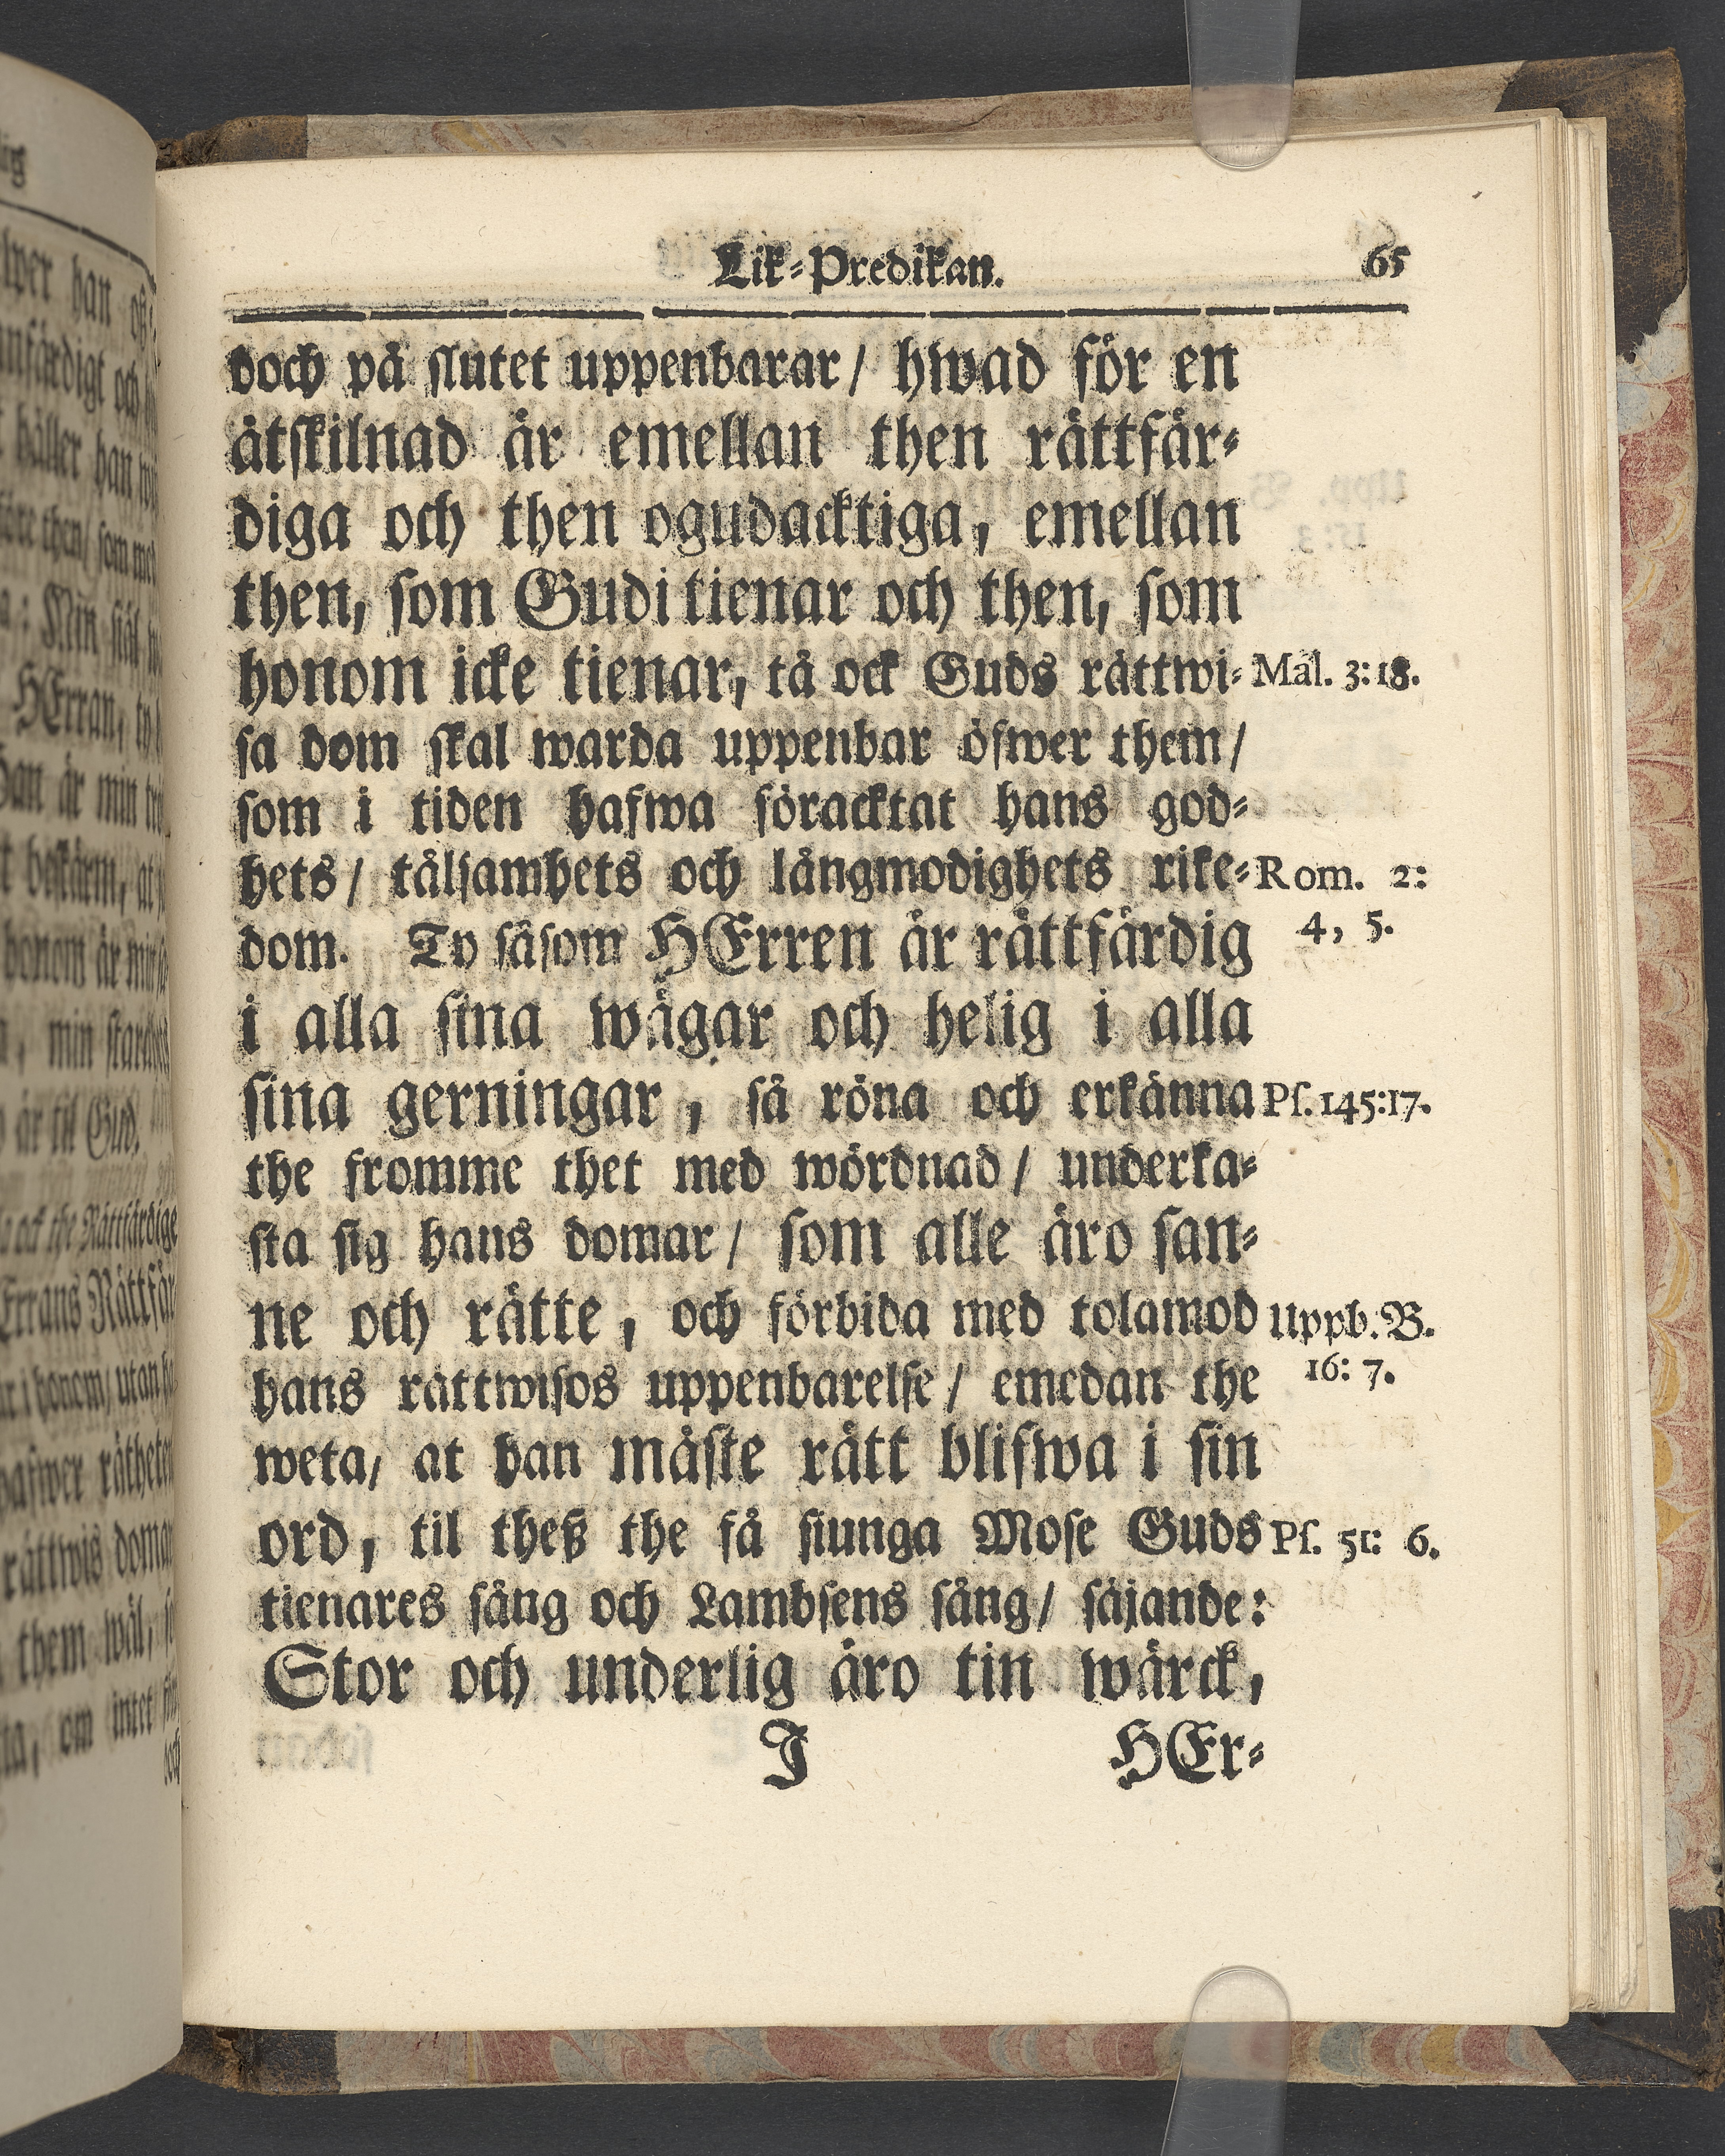 Lik-Predikan. 65
doch på slutet uppenbarar/ hwad för en
åtskilnad är emellan then rättfär-
diga och then ogudacktiga, emellan
then, som Gudi tienar och then, som
honom icke tienar, tå ock Guds rättwi- Mal. 3:18.
sa dom skal warda uppenbar öfwer them/
som i tiden hafwa föracktat hans god-
hets/ tålsamhets och långmodighets rike- Rom. 2:
dom. Ty såsom HErren är rättfärdig 4, 5.
i alla sina wägar och helig i alla
sina gerningar, så röna och erkänna Ps. 145:17.
the fromme thet med wördnad/ underka-
sta sig hans domar/ som alle äro san-
ne och rätte, och förbida med tolamod Uppb. B.
hans rättwisos uppenbarelse/ emedan the 16: 7.
weta, at han måste rätt blifwa i sin
ord, til theß the få siunga Mose Guds Ps. 51: 6.
tienares sång och Lambsens sång/ säjande:
Stor och underlig äro tin wärck,
J HEr-